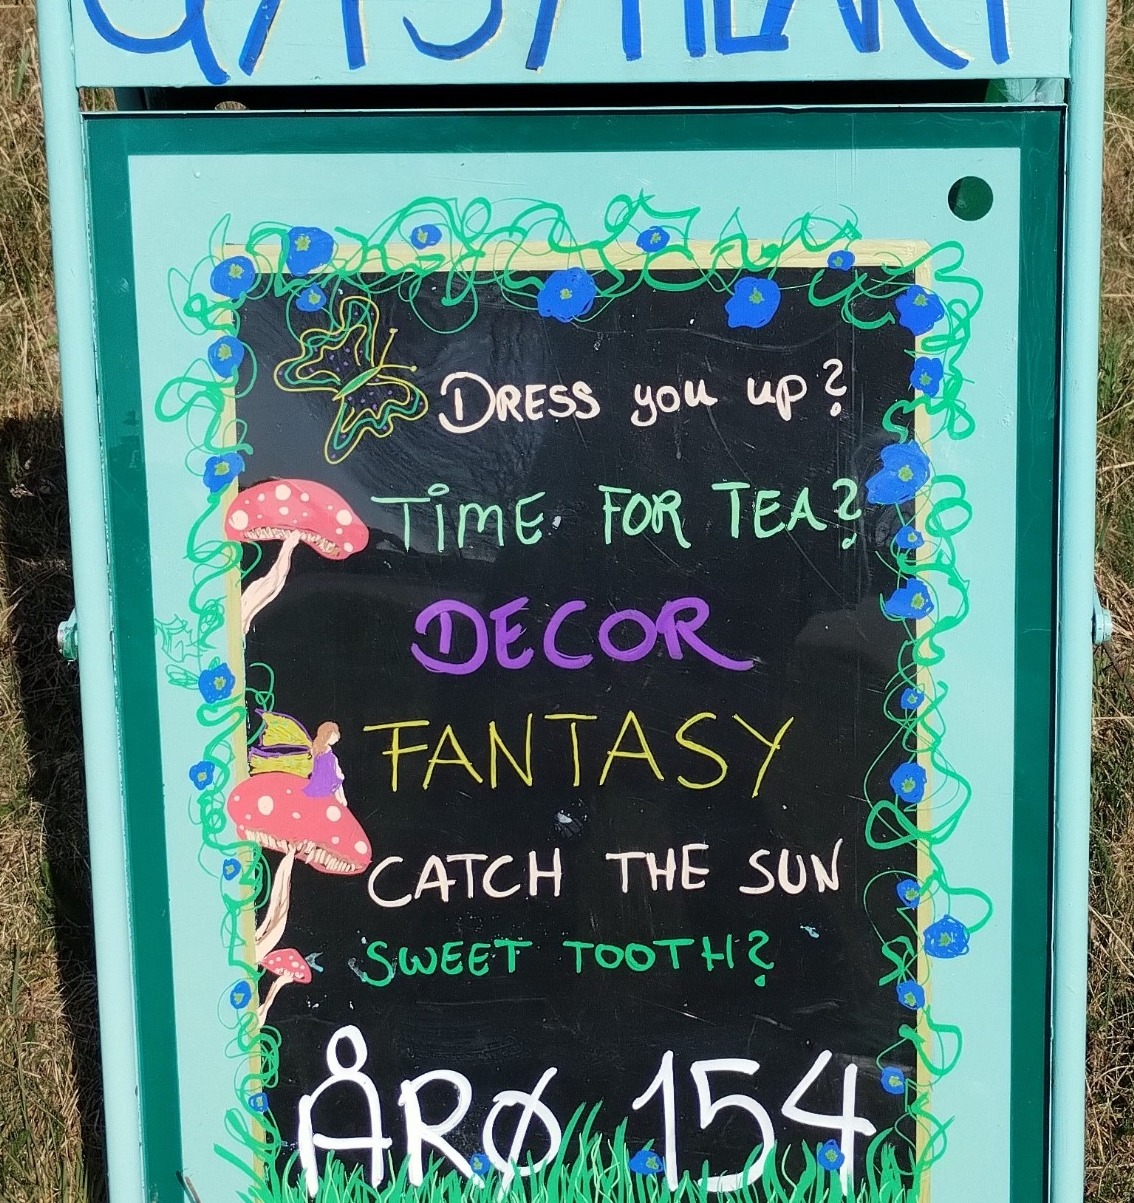 Dress you up?
Time for Tea?
DECOR
FANTASY
CATCH THE SUN
SWEET TOOTH?
ÅRØ 154